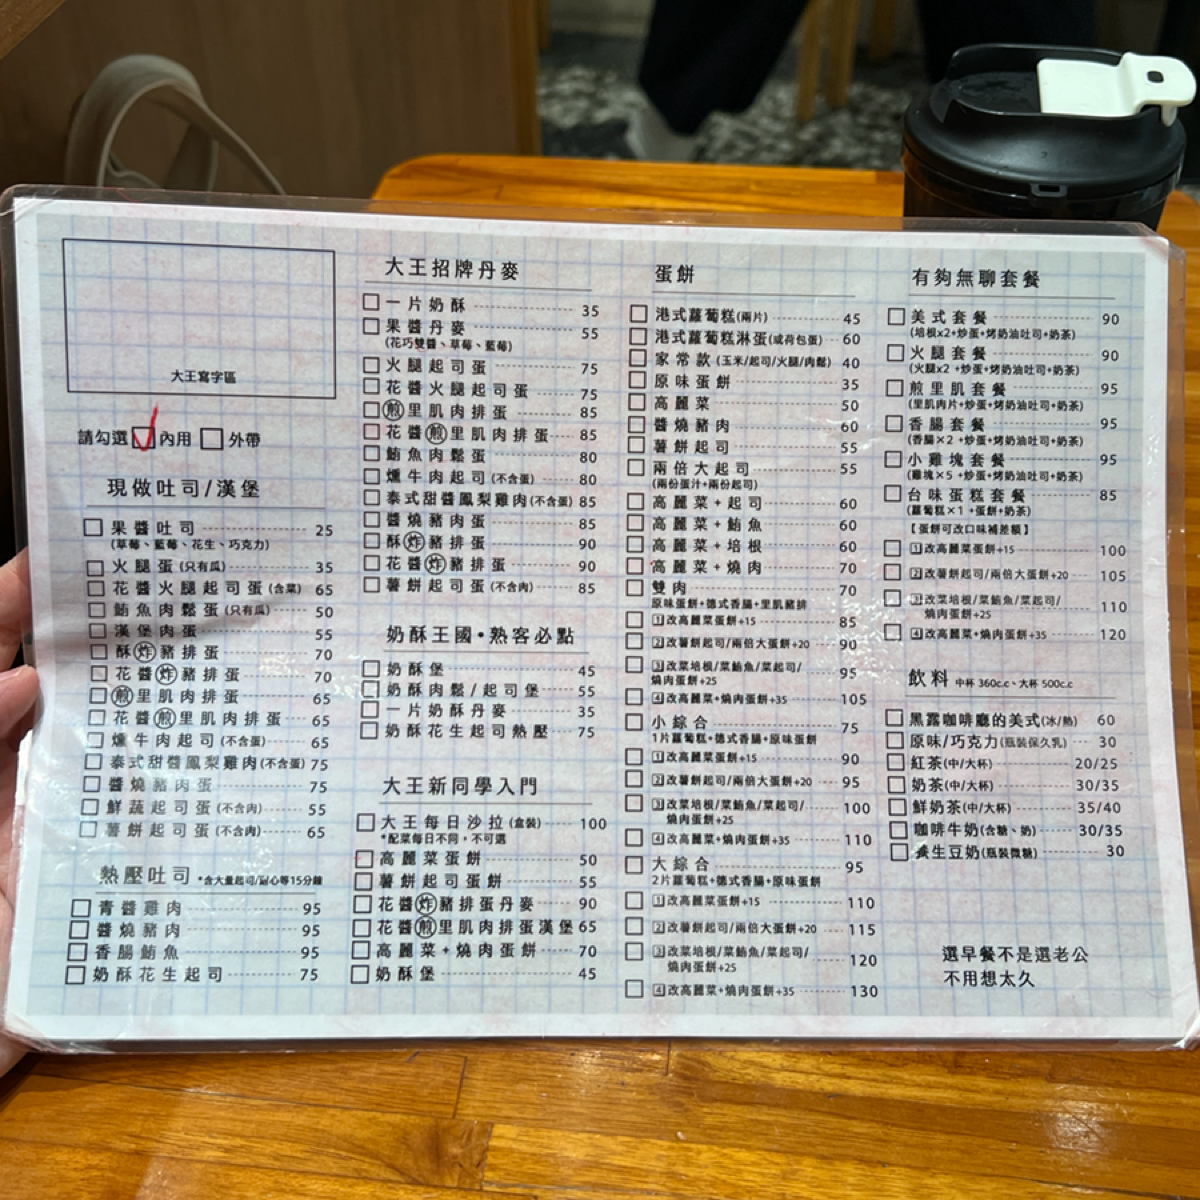 大王寫字區
請勾選 內用 外帶
現做吐司/漢堡
果醬吐司 25
(草莓、藍莓、花生、巧克力)
火腿蛋(只有瓜) 35
花醬火腿起司蛋(含菜) 65
鮪魚肉鬆蛋(只有瓜) 50
漢堡肉蛋 55
酥炸豬排蛋 70
花醬炸豬排蛋 70
煎里肌肉排蛋 65
花醬煎里肌肉排蛋 65
燻牛肉起司(不含蛋) 65
泰式甜醬鳳梨雞肉(不含蛋) 75
醬燒豬肉蛋 75
鮮蔬起司蛋(不含肉) 55
薯餅起司蛋(不含肉) 65
熱壓吐司 *含大量起司/耐心等15分鐘
青醬雞肉 95
醬燒豬肉 95
香腸鮪魚 95
奶酥花生起司 75
大王招牌丹麥
一片奶酥 35
果醬丹麥 55
(花巧雙醬、草莓、藍莓)
火腿起司蛋 75
花醬火腿起司蛋 75
煎里肌肉排蛋 85
花醬煎里肌肉排蛋 85
鮪魚肉鬆蛋 80
燻牛肉起司(不含蛋) 80
泰式甜醬鳳梨雞肉(不含蛋) 85
醬燒豬肉蛋 85
酥炸豬排蛋 90
花醬炸豬排蛋 90
薯餅起司蛋(不含肉) 85
奶酥王國•熟客必點
奶酥堡 45
奶酥肉鬆/起司堡 55
一片奶酥丹麥 35
奶酥花生起司熱壓 75
大王新同學入門
大王每日沙拉(盒裝) 100
*配菜每日不同,不可選
高麗菜蛋餅 50
薯餅起司蛋餅 55
花醬炸豬排蛋丹麥 90
花醬煎里肌肉排蛋漢堡 65
高麗菜+燒肉蛋餅 70
奶酥堡 45
蛋餅
港式蘿蔔糕(兩片) 45
港式蘿蔔糕淋蛋(或荷包蛋) 60
家常款(玉米/起司/火腿/肉鬆) 40
原味蛋餅 35
高麗菜 50
醬燒豬肉 60
薯餅起司 55
兩倍大起司 55
(兩份蛋汁+兩份起司)
高麗菜+起司 60
高麗菜+鮪魚 60
高麗菜+培根 60
高麗菜+燒肉 70
雙肉 70
原味蛋餅+德式香腸+里肌豬排
1改高麗菜蛋餅+15 85
2改薯餅起司/兩倍大蛋餅+20 90
3改菜培根/菜鮪魚/菜起司/
燒肉蛋餅+25 95
4改高麗菜+燒肉蛋餅+35 105
小綜合 75
1片蘿蔔糕+德式香腸+原味蛋餅
1改高麗菜蛋餅+15 90
2改薯餅起司/兩倍大蛋餅+20 95
3改菜培根/菜鮪魚/菜起司/
燒肉蛋餅+25 100
4改高麗菜+燒肉蛋餅+35 110
大綜合 95
2片蘿蔔糕+德式香腸+原味蛋餅
1改高麗菜蛋餅+15 110
2改薯餅起司/兩倍大蛋餅+20 115
3改菜培根/菜鮪魚/菜起司/
燒肉蛋餅+25 120
4改高麗菜+燒肉蛋餅+35 130
有夠無聊套餐
美式套餐 90
(培根x2+炒蛋+烤奶油吐司+奶茶)
火腿套餐 90
(火腿x2+炒蛋+烤奶油吐司+奶茶)
煎里肌套餐 95
(里肌肉片+炒蛋+烤奶油吐司+奶茶)
香腸套餐 95
(香腸×2+炒蛋+烤奶油吐司+奶茶)
小雞塊套餐 95
(雞塊×5+炒蛋+烤奶油吐司+奶茶)
台味蛋糕套餐 85
(蘿蔔糕×1+蛋餅+奶茶)
【蛋餅可改口味補差額】
1改高麗菜蛋餅+15 100
2改薯餅起司/兩倍大蛋餅+20 105
3改菜培根/菜鮪魚/菜起司/
燒肉蛋餅+25 110
4改高麗菜+燒肉蛋餅+35 120
飲料 中杯 360c.c、大杯 500c.c
黑露咖啡廳的美式(冰/熱) 60
原味/巧克力(瓶裝保久乳) 30
紅茶(中/大杯) 20/25
奶茶(中/大杯) 30/35
鮮奶茶(中/大杯) 35/40
咖啡牛奶(含糖、奶) 30/35
養生豆奶(瓶裝微糖) 30
選早餐不是選老公
不用想太久